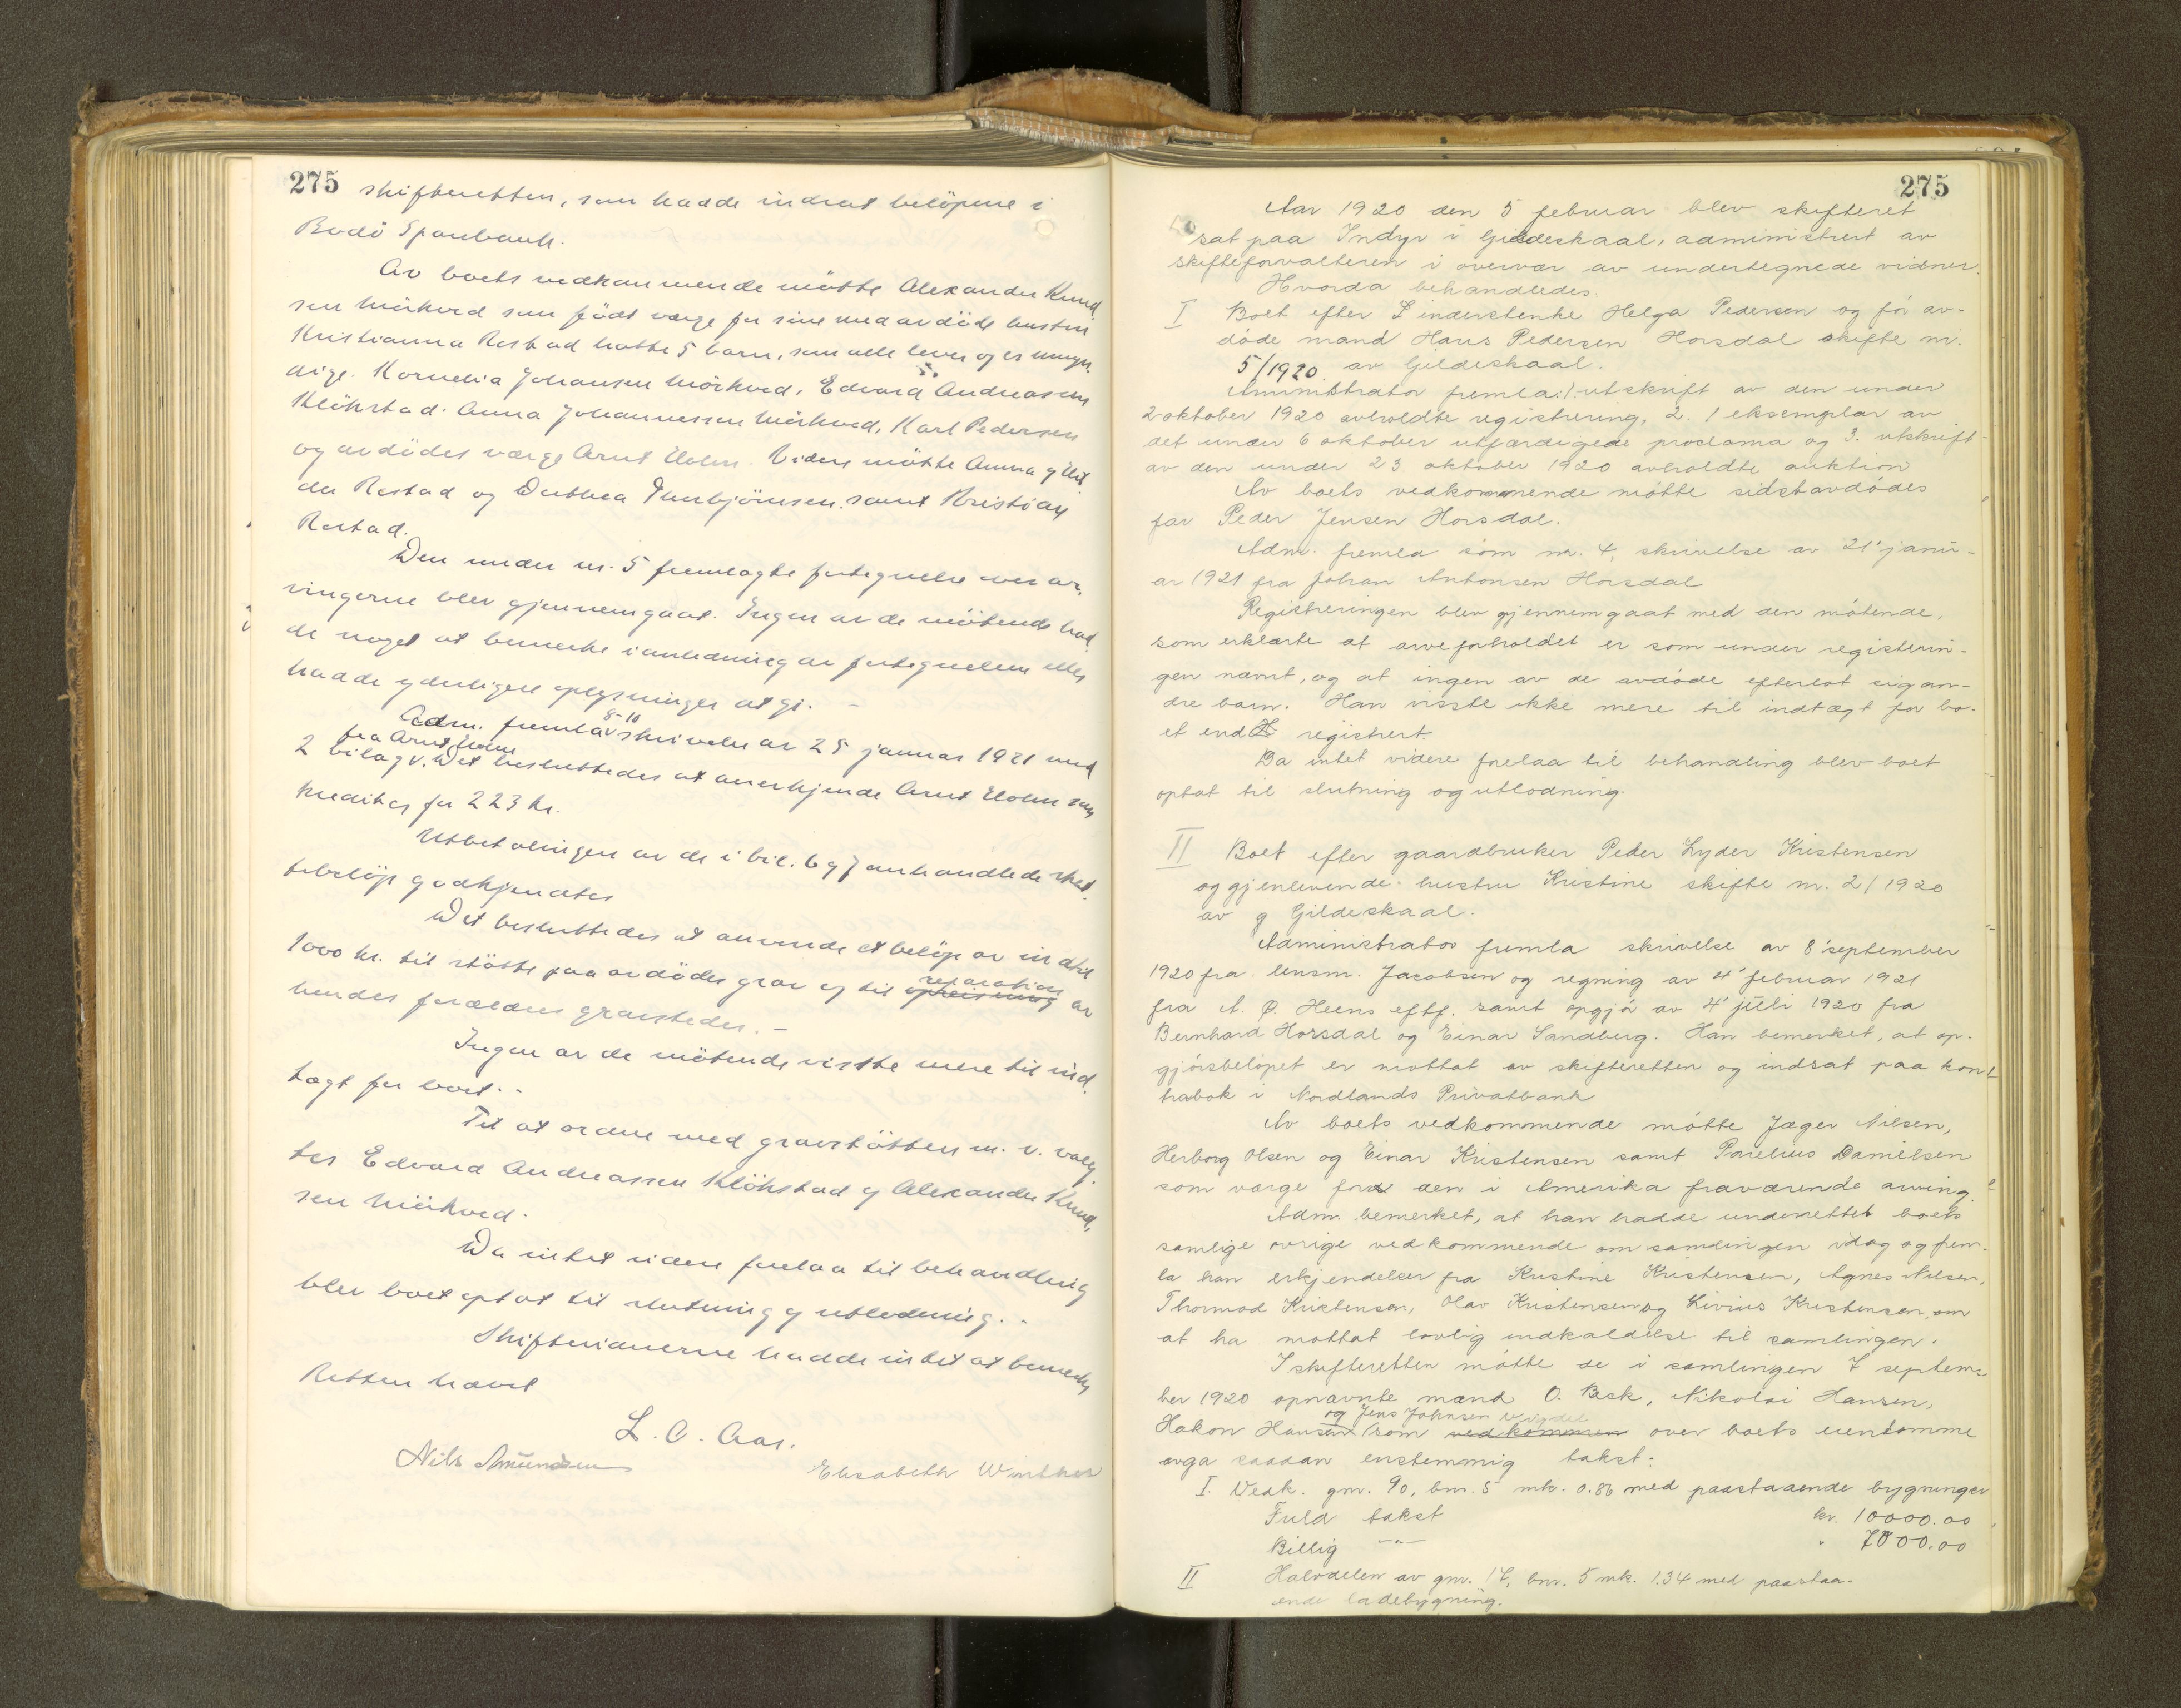 275
skifteretten, som hadde indsat beløpene i
Bodö Sparebank.
Av boets vedkommende mötte Alexander Knud-
sen Mörkved som født verge for sine med avdöde hustru
Kristianna Rostad hatte 5 barn, som alle lever og er umyn-
dige. Kornelia Johansen Mörkved, Edvard Andreassen
Klökstad. Anna Johannessen Mörkved, Karl Pedersen
og avdödes verge Arnt Holm. Videre mötte Anna og
Rostad og Dorthea Thorbjörnsen samt Kristian
Rostad.
Den under nr. 5 fremlagte fortegnelse over ar-
vingerne blev gjennemgaat. Ingen av de mötende had-
de noget at bemerke i anledning av fortegnelsen eller
hadde yderligere oplysninger at gi. -
Adm. fremla 8-10 skrivelse av 25 januar 1921 med
2 bilag fra Arnt Holm. Det besluttedes at anerkjende Arnt Holm som
kreditor for 223 kr.
Utbetalingen av de i bil. 6 og 7 omhandlede skat-
tebelöp godkjendtes
Det besluttedes at anvende et belöp av indtil
1000 kr. til stötte paa avdödes grav og til opreisning reparation av
hendes forældres gravsteder. -
Ingen av de mötende visste mere til ind-
tægt for boet. -
Til at ordne med gravstötten m. v. valg-
tes Edvard Andreassen Klökstad og Alexander Knud-
sen Mörkved.
Da intet videre forelaa til behandling
blev boet optat til slutning og utlodning. -
Skiftevidnerne hadde intet at bemerke
Retten hævet
L. C. Aas.
Nils Amundsen Elisabeth Winther
275
Aar 1920 den 5 februar blev skifteret
sat paa Indyr i Gildeskaal, administrert av
skifteforvalteren i overvær av undertegnede vidner.
Hvorda behandledes:
I Boet efter Inderstenke Helga Pedersen og før av-
døde mand Hans Pedersen Horsdal skifte nr.
5/1920 av Gildeskaal.
Aministrator fremla: 1. utskrift av den under
2 oktober 1920 avholdte registrering, 2. 1 eksemplar av
det under 6 oktober utfærdigede proclama og 3. utskrift
av den under 23 oktober 1920 avholdte auktion
Av boets vedkommende møtte sidstavdødes
far Peder Jensen Horsdal.
Adm. fremla som nr. 4, skrivelse av 21' janu-
ar 1921 fra Johan Antonsen Horsdal
Registreringen blev gjennemgaat med den møtende,
som erklærte at arveforholdet er som under registerin-
gen nævnt, og at ingen av de avdøde efterlot sig an-
dre barn. Han visste ikke mere til indtægt for bo-
et end registrert.
Da intet videre forelaa til behandling blev boet
optat til slutning og utlodning.
II Boet efter gaardbruker Peder Lyder Kristensen
og gjenlevende hustru Kristine skifte nr. 2/1920
av g Gildeskaal.
Administrator fremla skrivelse av 8' september
1920 fra lensm. Jacobsen og regning av 4' februar 1921
fra A. Ø. Heens eftf. samt opgjør av 4' juli 1920 fra
Bernhard Horsdal og Einar Sandberg. Han bemerket, at op-
gjørsbeløpet er mottat av skifteretten og indsat paa kont-
trabok i Nordlands Privatbank
Av boets vedkommende møtte Jæger Nilsen,
Herborg Olsen og Einar Kristensen samt Paulius Danielsen
som værge for den i Amerika fraværende arving.
Adm. bemerket, at han hadde underrettet boets
samlige øvrige vedkommende om samlingen idag og frem-
la han erkjendelser fra Kristine Kristensen, Agnes Nilsen,
Thormod Kristensen, Olav Kristensen og Livius Kristensen om
at ha mottat lovlig indkaldelse til samlingen.
I skifteretten møtte de i samlingen 7 septem-
ber 1920 opnævnte mænd O. Bek, Nikolai Hansen,
Hakon Hansen og Jens Johnsen som vedkommen over boets eiendomme
avga saadan enstemmig takst:
I. Vedk. gnr. 90, bnr. 5 mk. 0.86 med paastaaende bygninger
Fuld takst kr. 10000.00
Billig -"- " 7000.00
II Halvdelen av gnr. 17, bnr. 5 mk. 1.34 med paastaa-
ende ladebygning.